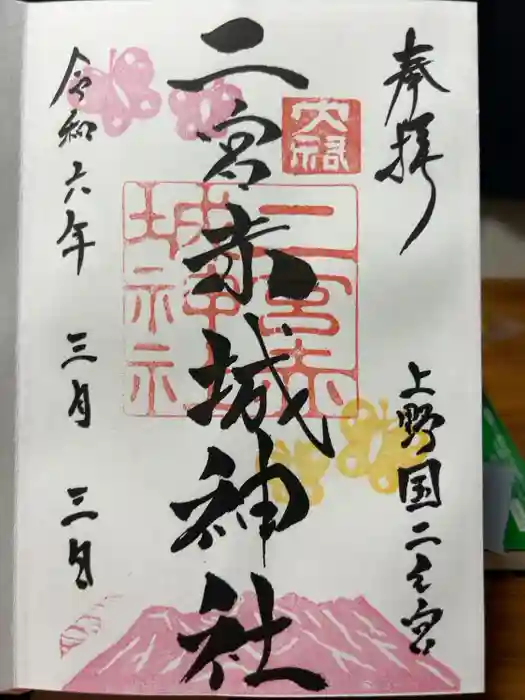 奉拝
上野国二之宮
二宮赤城神社
令和六年 三月 三日
二宮赤
城神社